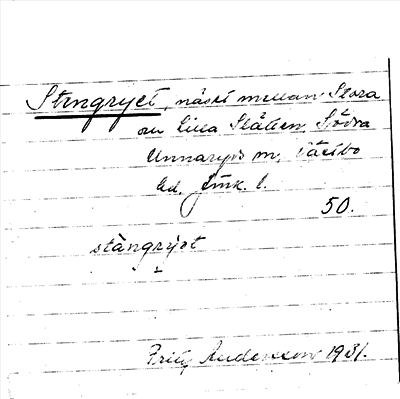 Stengryet, näset mellan Stora
och Lilla Slätten, Södra
Unnaryds sn, Västbo
hd. Jönk. l.
50.
stàngrýet
Fritz Andersson 1931.